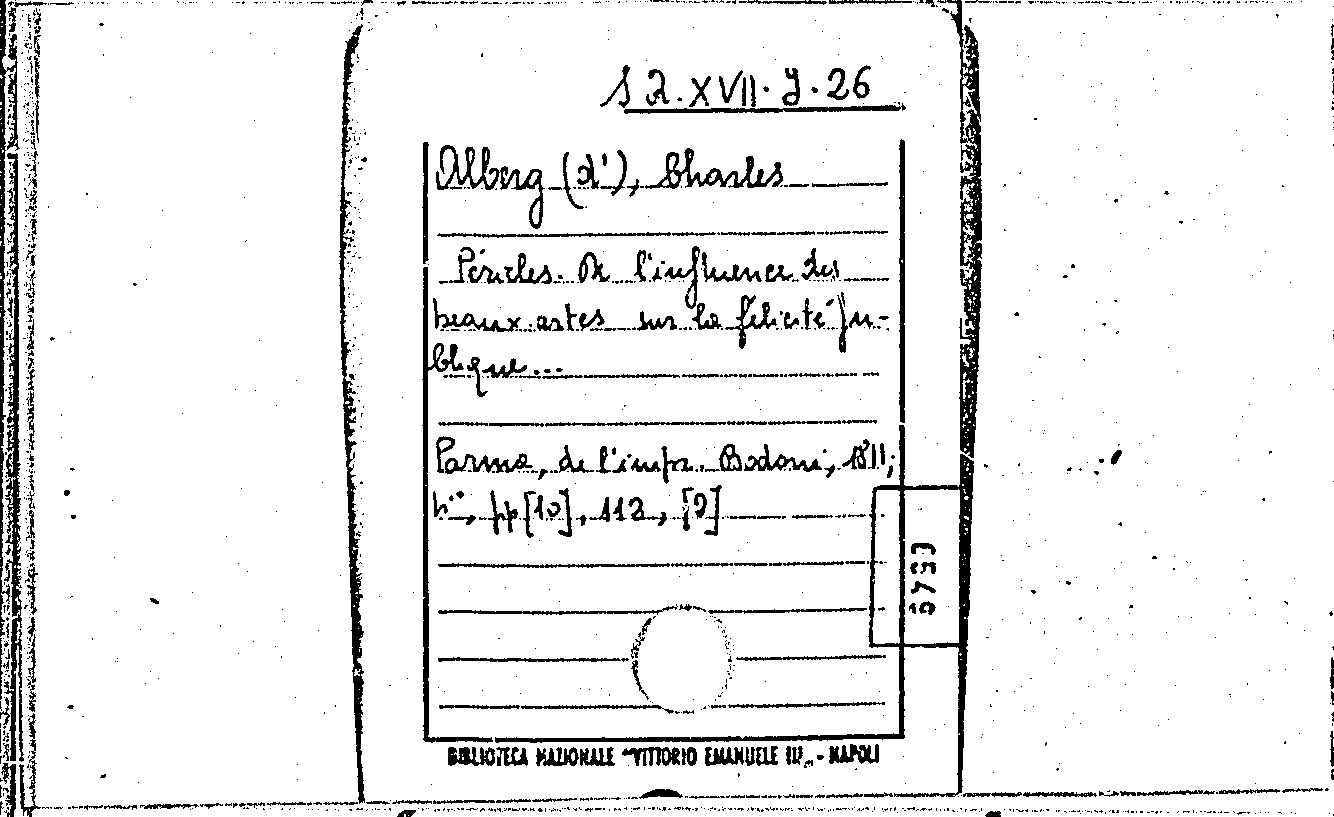 S 2. XVII. J. 26
Alberg (d'), Charles
Péricles. De l'influence des
beaux artes sur la félicité pu-
blique...
Parma, de l'impr. Bodoni, 1811;
4°, pp [10], 112, [2]
BIBLIOTECA NAZIONALE "VITTORIO EMANUELE III" - NAPOLI